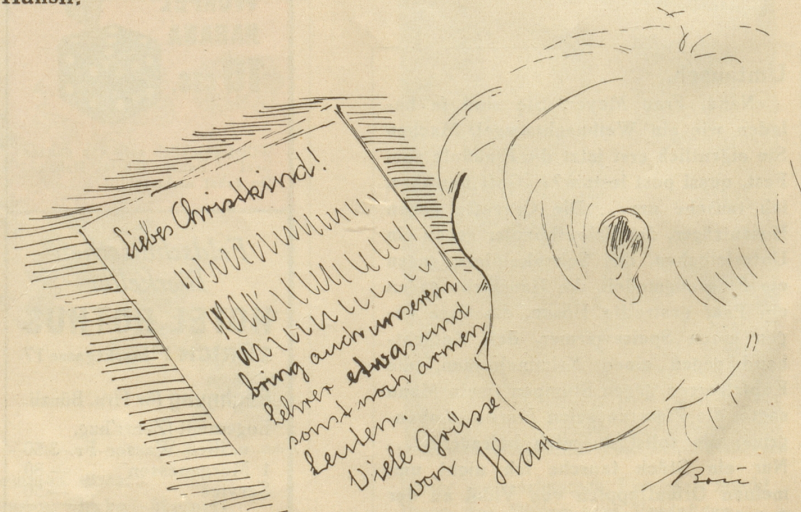 Liebes Christkind!
bring auch unserem
Lehrer etwas und
sonst noch armen
Leuten.
Viele Grüsse
von Han